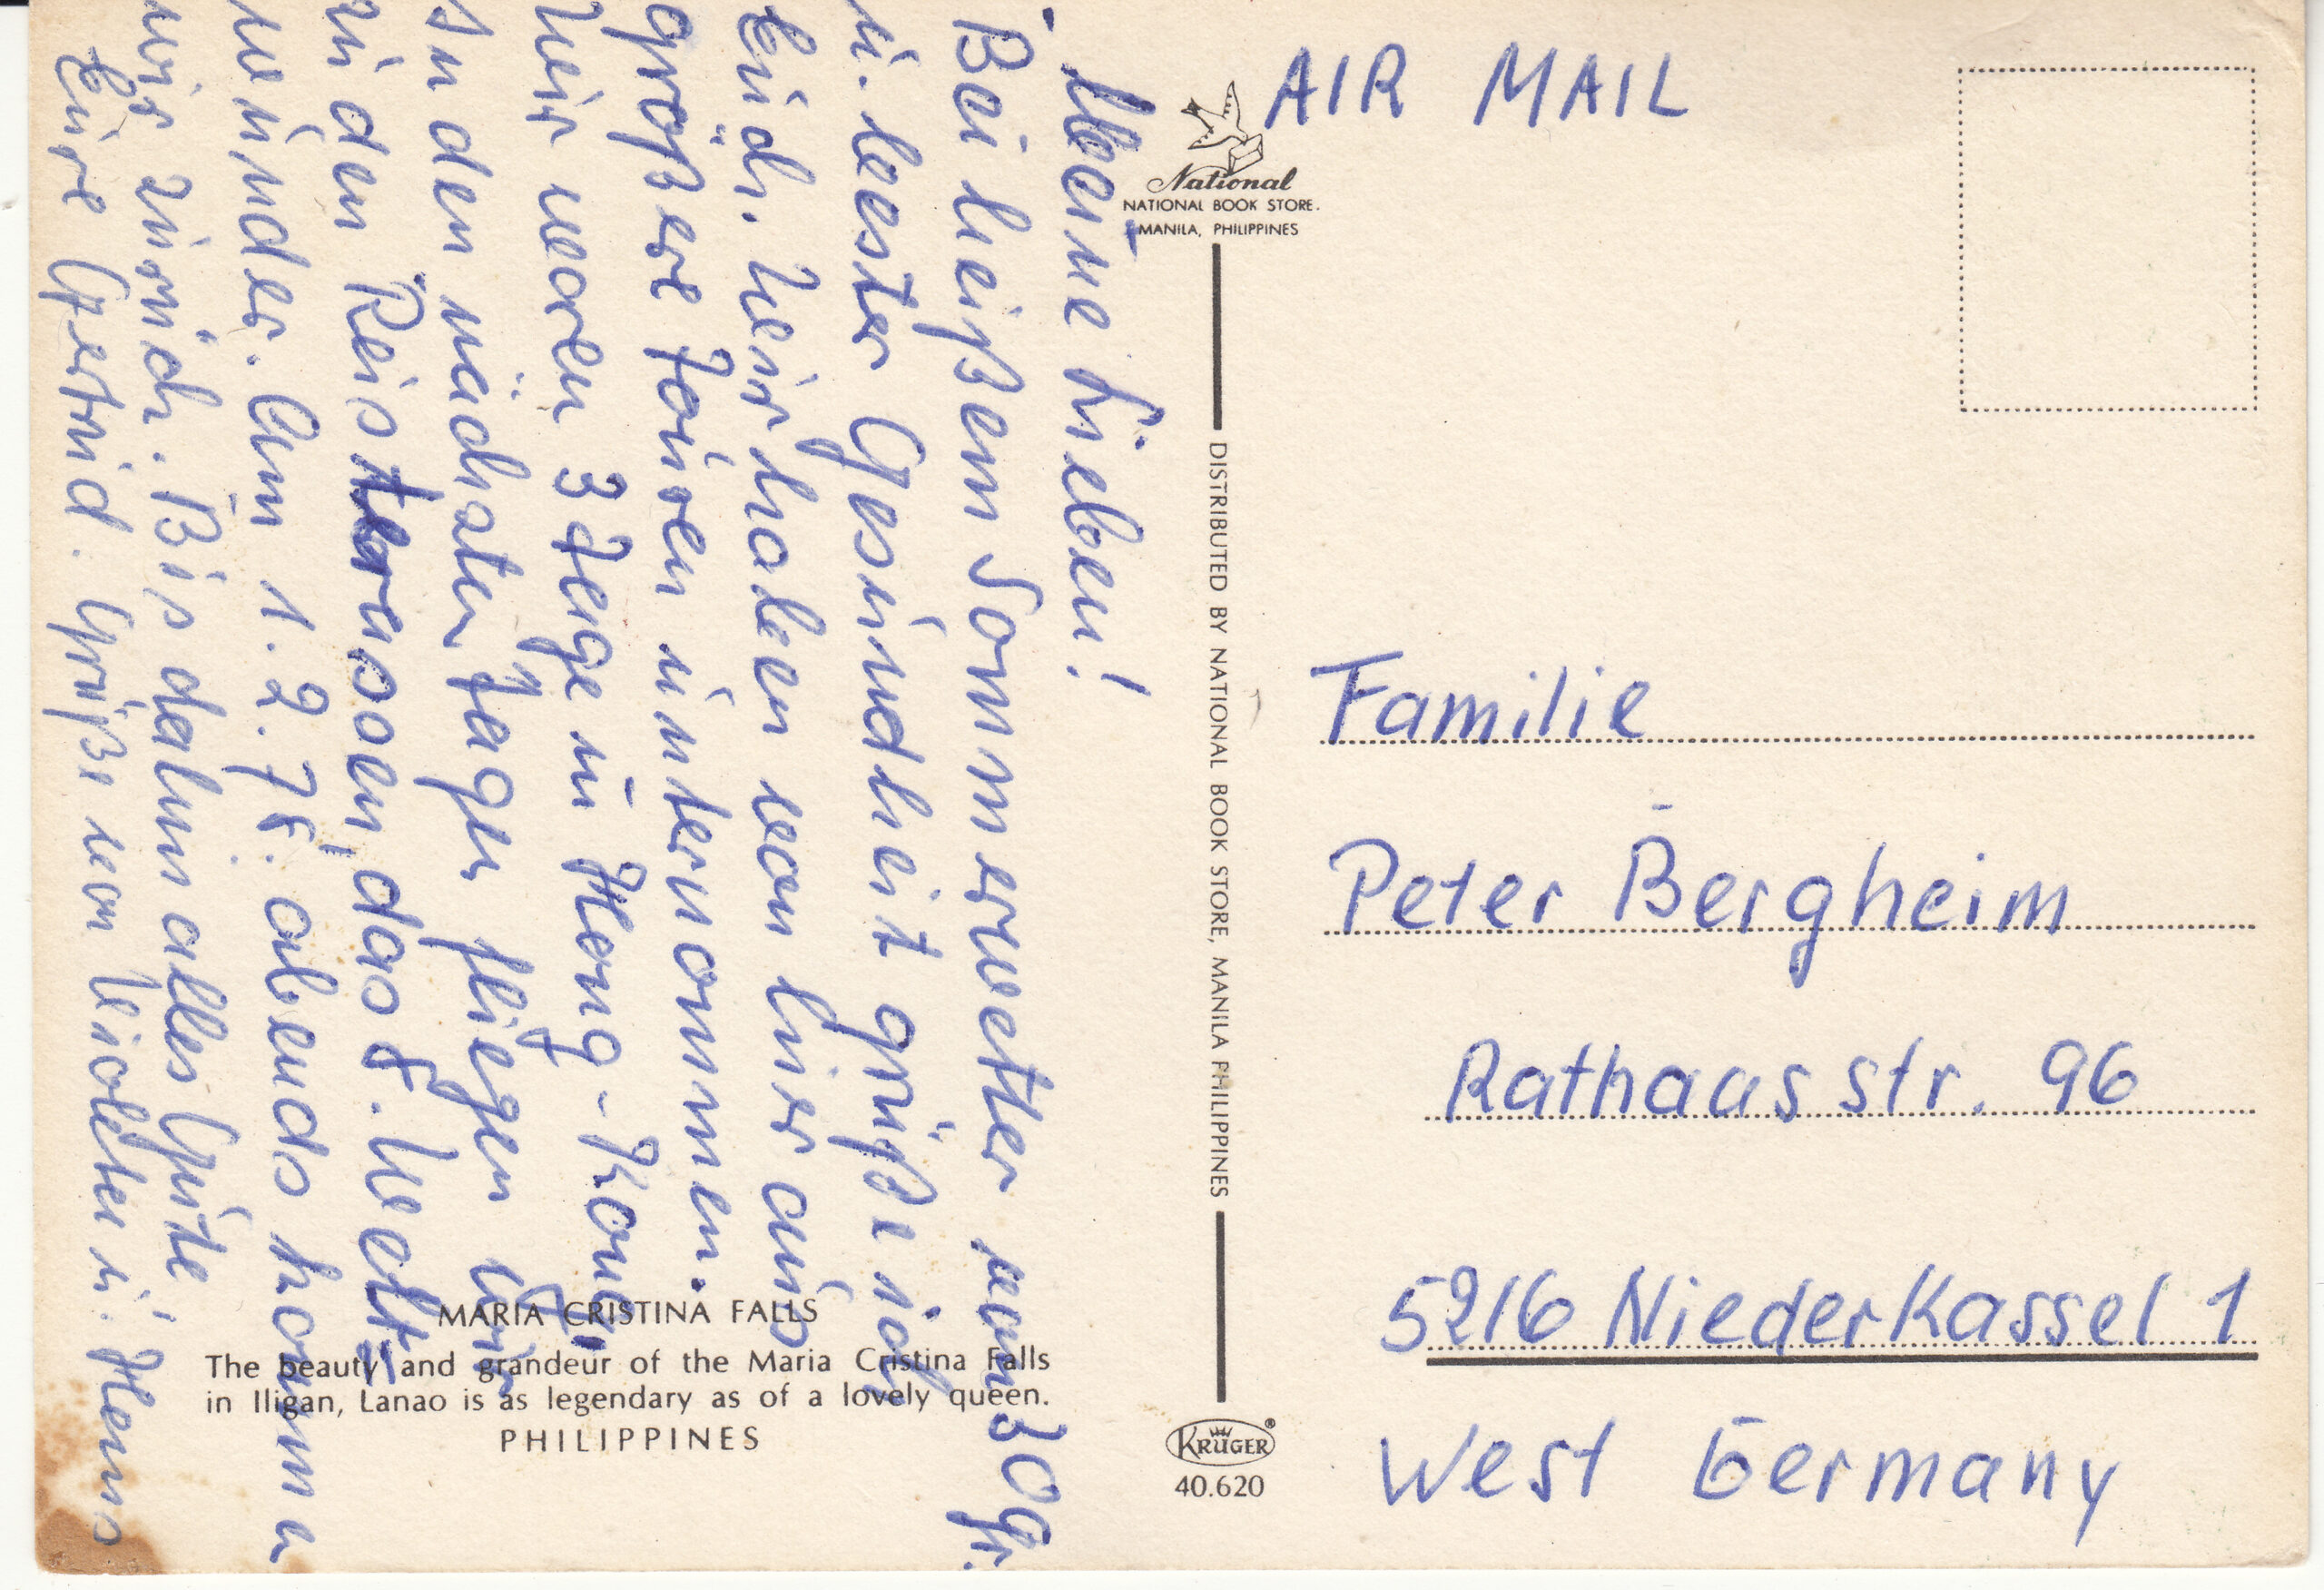 Meine Lieben!
Bei heißem Sommerwetter von 30 Gr.
u. bester Gesundheit grüße ich
Euch. Wir haben von hier aus
größere Touren unternommen.
Wir waren 3 Tage in Hong-Kong.
In den nächsten Tagen fliegen wir
zu den Reisterassen, das 8. Welt
wunder. Am 1.2.78. abends kommen
wir zurück. Bis dahin alles Gute
Eure Gertrud. Grüße von u. Hans
AIR MAIL
National
NATIONAL BOOK STORE.
MANILA, PHILIPPINES
DISTRIBUTED BY NATIONAL BOOK STORE, MANILA PHILIPPINES
Familie
Peter Bergheim
Rathausstr. 96
5216 Niederkassel 1
West Germany
MARIA CRISTINA FALLS
The beauty and grandeur of the Maria Cristina Falls
in Iligan, Lanao is as legendary as of a lovely queen.
PHILIPPINES
KRÜGER®
40.620